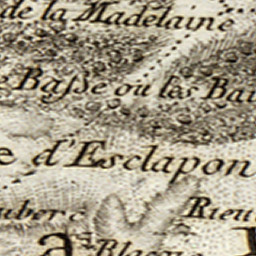 de la Madelaine
Basse ou las Bai
e d'Esclapon
uber
Rieu
Blacou